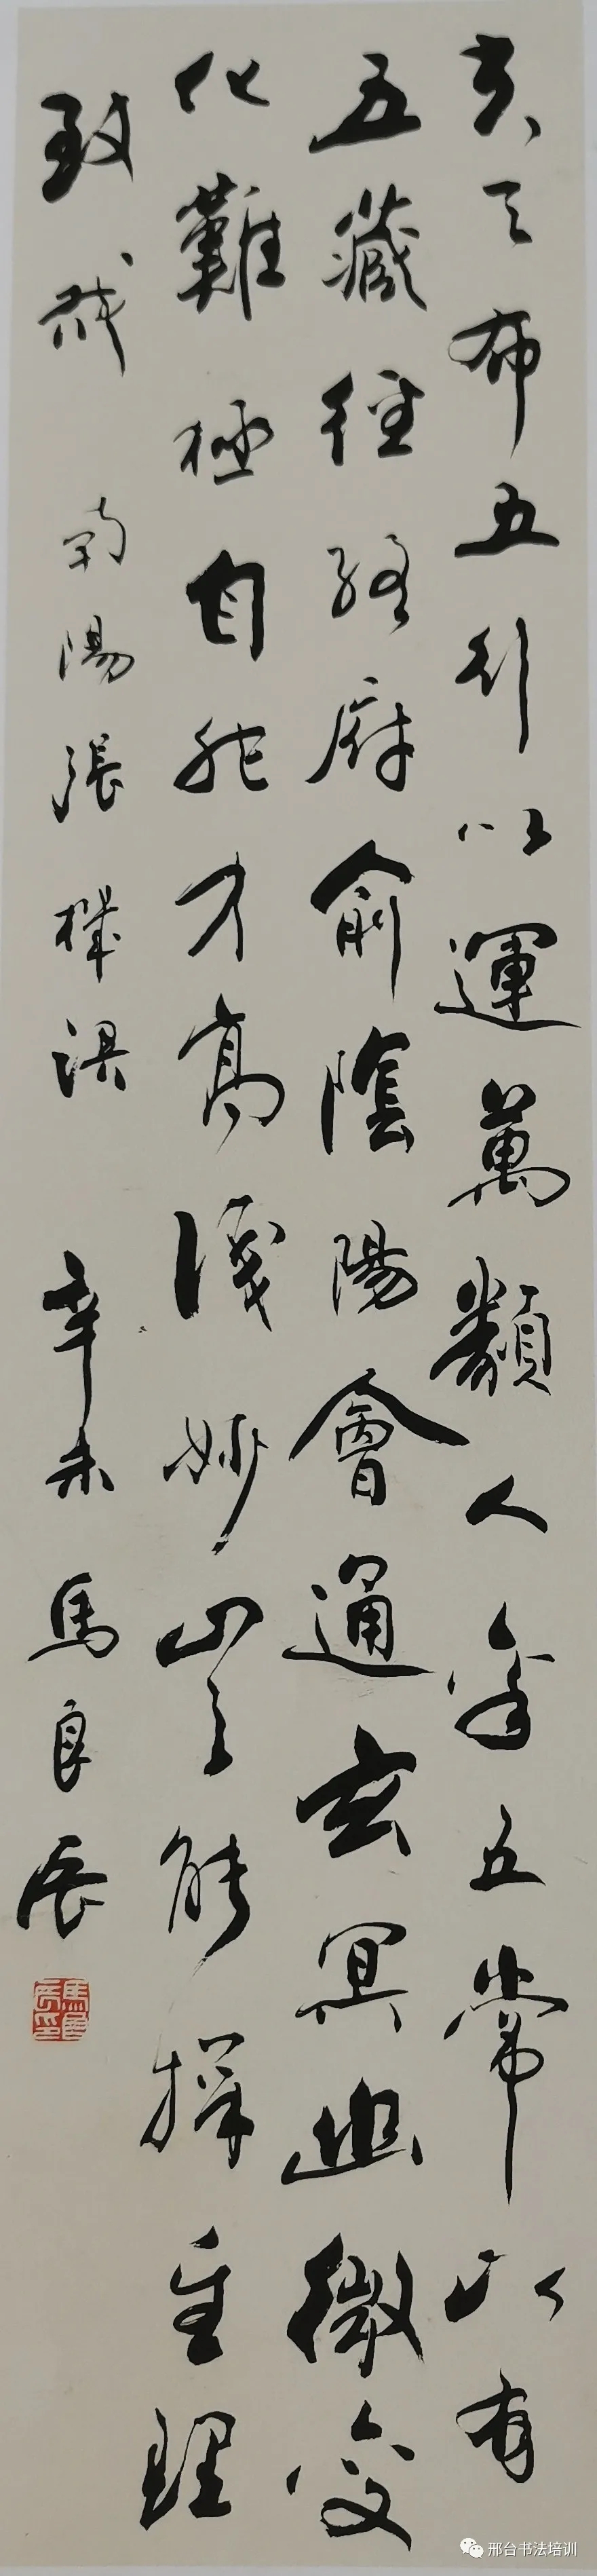 夫天布五行以運萬類人稟五常以有
五藏經絡府俞陰陽會通玄冥幽微變
化難極自非才高識妙豈能探至理
致哉 南陽張機誤 辛未 馬良辰
邢台书法培训